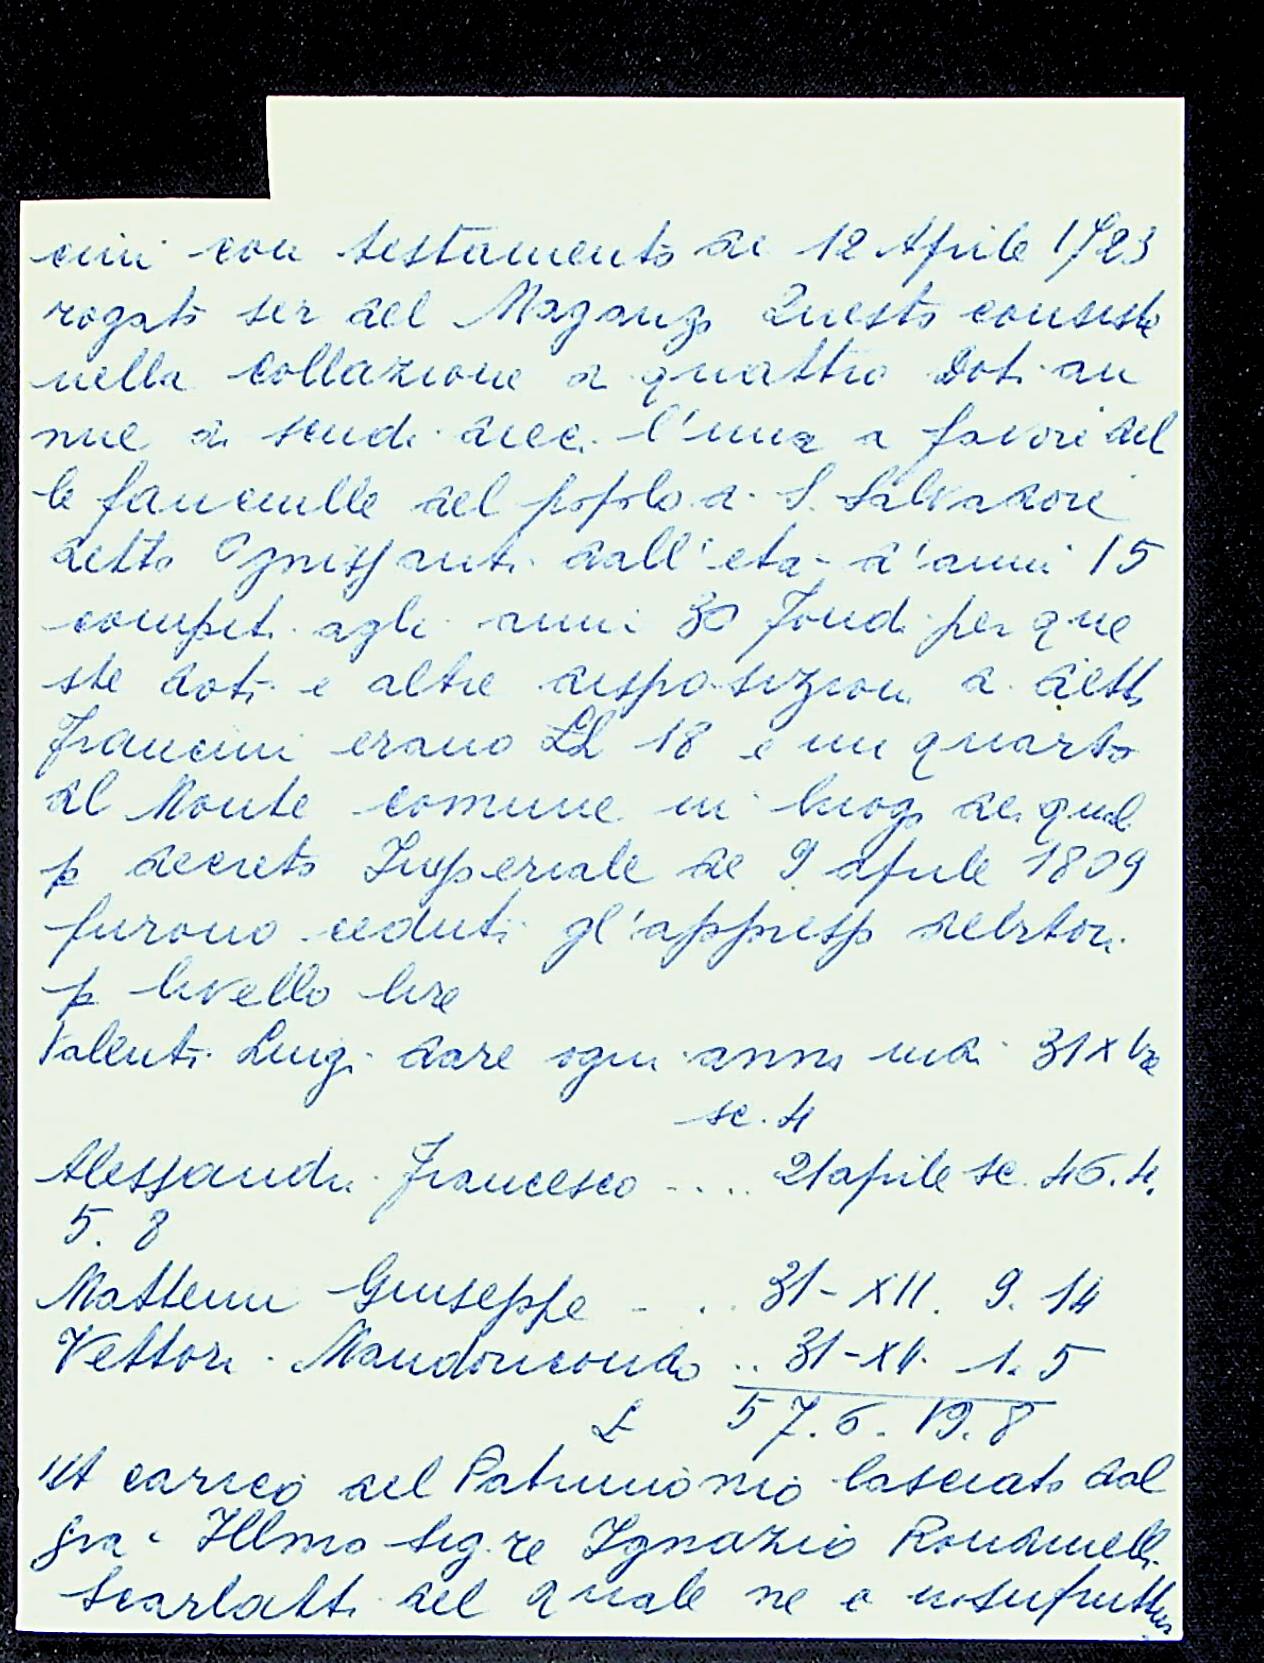 cini con testamento de 12 Aprile 1723
rogato ser del Maganzo Questo consiste
nella Collazione di quattro Doti an
nue di scudi dieci l'una a favore del
le fanciulle del popolo di S. Salvadore
detto Ognissanti dall'età d'anni 15
compiti agli anni 30 Fondi per que
ste doti e altre disposizioni di detto
Francini erano LL 18 e un quarto
del Monte comune in luogo dei quali
p decreto Imperiale de 9 aprile 1809
furono ceduti gl'appresso debitori
p livello lire
Valenti Luigi dare ogni anno 31 Xbre
sc. 4
Alessandri Francesco .... 21 aprile sc. 46.4.
5. 8
Matteini Giuseppe - .. 31-XII. 9. 14
Vettori .. 31-XII. 1. 5
£ 57.6.19.8
"A carico del Patrimonio lasciato dal
fra Illmo Sig.re Ignazio Rondinelli
Scarlatti del quale ne e usufruttu